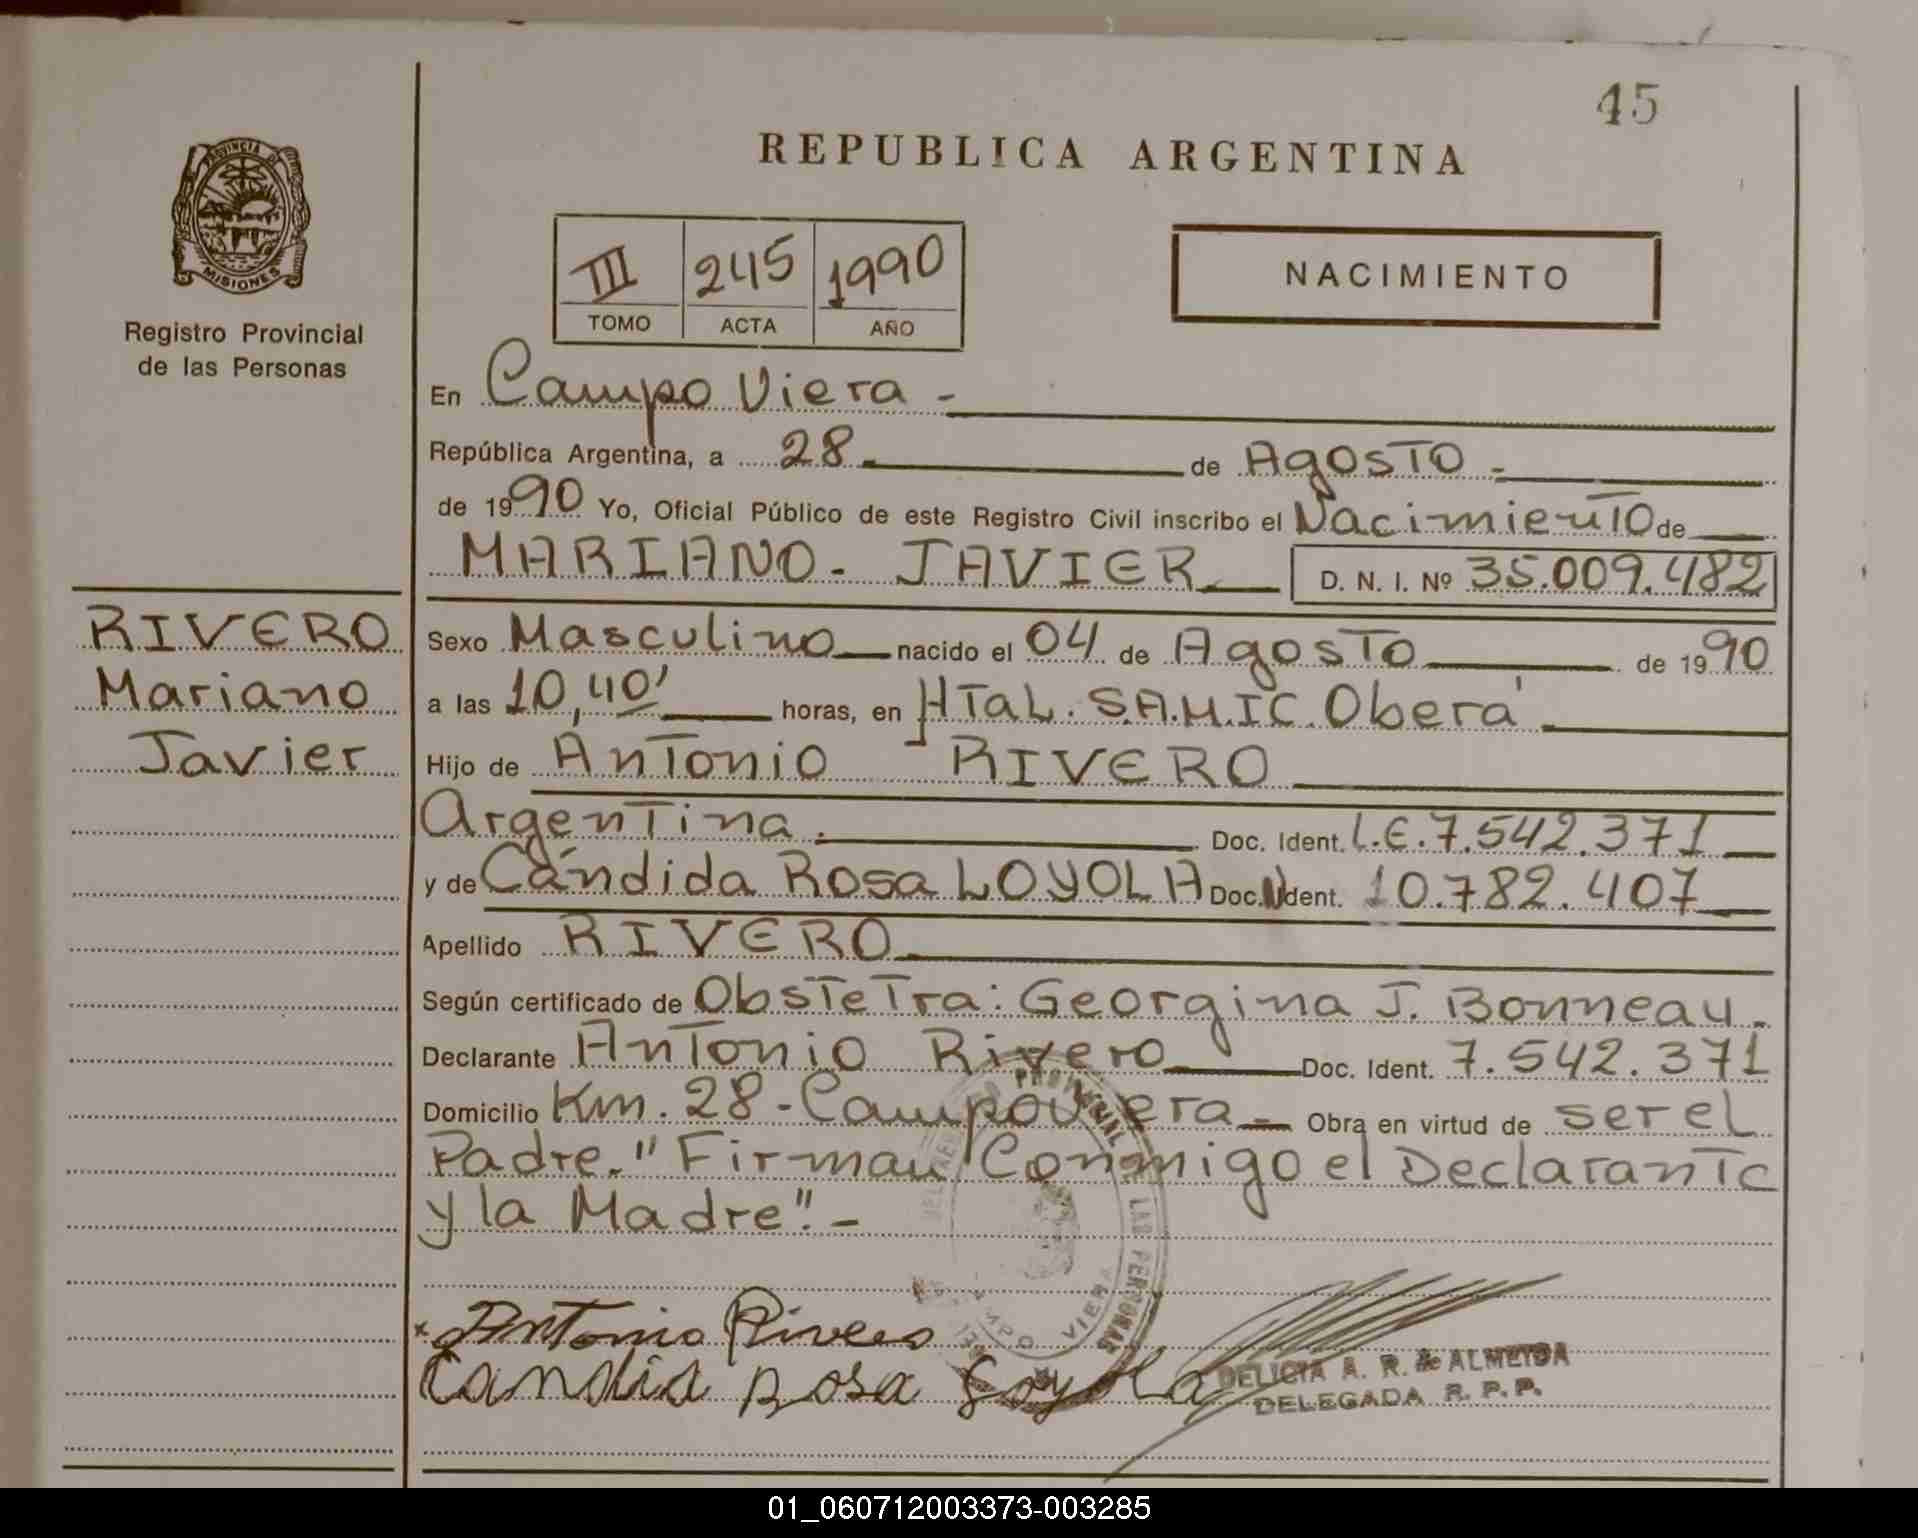 45
REPUBLICA ARGENTINA
PROVINCIA DE
MISIONES
Registro Provincial
de las Personas
III 245 1990
TOMO ACTA AÑO
NACIMIENTO
En Campo Viera -
República Argentina, a 28 de Agosto -
de 1990 Yo, Oficial Público de este Registro Civil inscribo el Nacimiento de
MARIANO - JAVIER D. N. I. Nº 35.009.482
RIVERO
Mariano
Javier
Sexo Masculino nacido el 04 de Agosto de 1990
a las 10,40' horas, en HTaL. S.A.M.I.C. Oberá
Hijo de Antonio RIVERO
Argentina. Doc. Ident. L.E. 7.542.371
y de Cándida Rosa LOYOLA Doc. Ident. 10.782.407
Apellido RIVERO
Según certificado de Obstetra: Georgina J. Bonneau.
Declarante Antonio Rivero Doc. Ident. 7.542.371
Domicilio Km. 28 - Campo Viera - Obra en virtud de ser el
Padre. "Firman Conmigo el Declarante
y la Madre". -
PROVINCIAL LAS PERSONAS
VIERA
x Antonio Rivero
Candia Rosa Loyola
DELICIA A. R. de ALMEIDA
DELEGADA R. P. P.
01_060712003373-003285